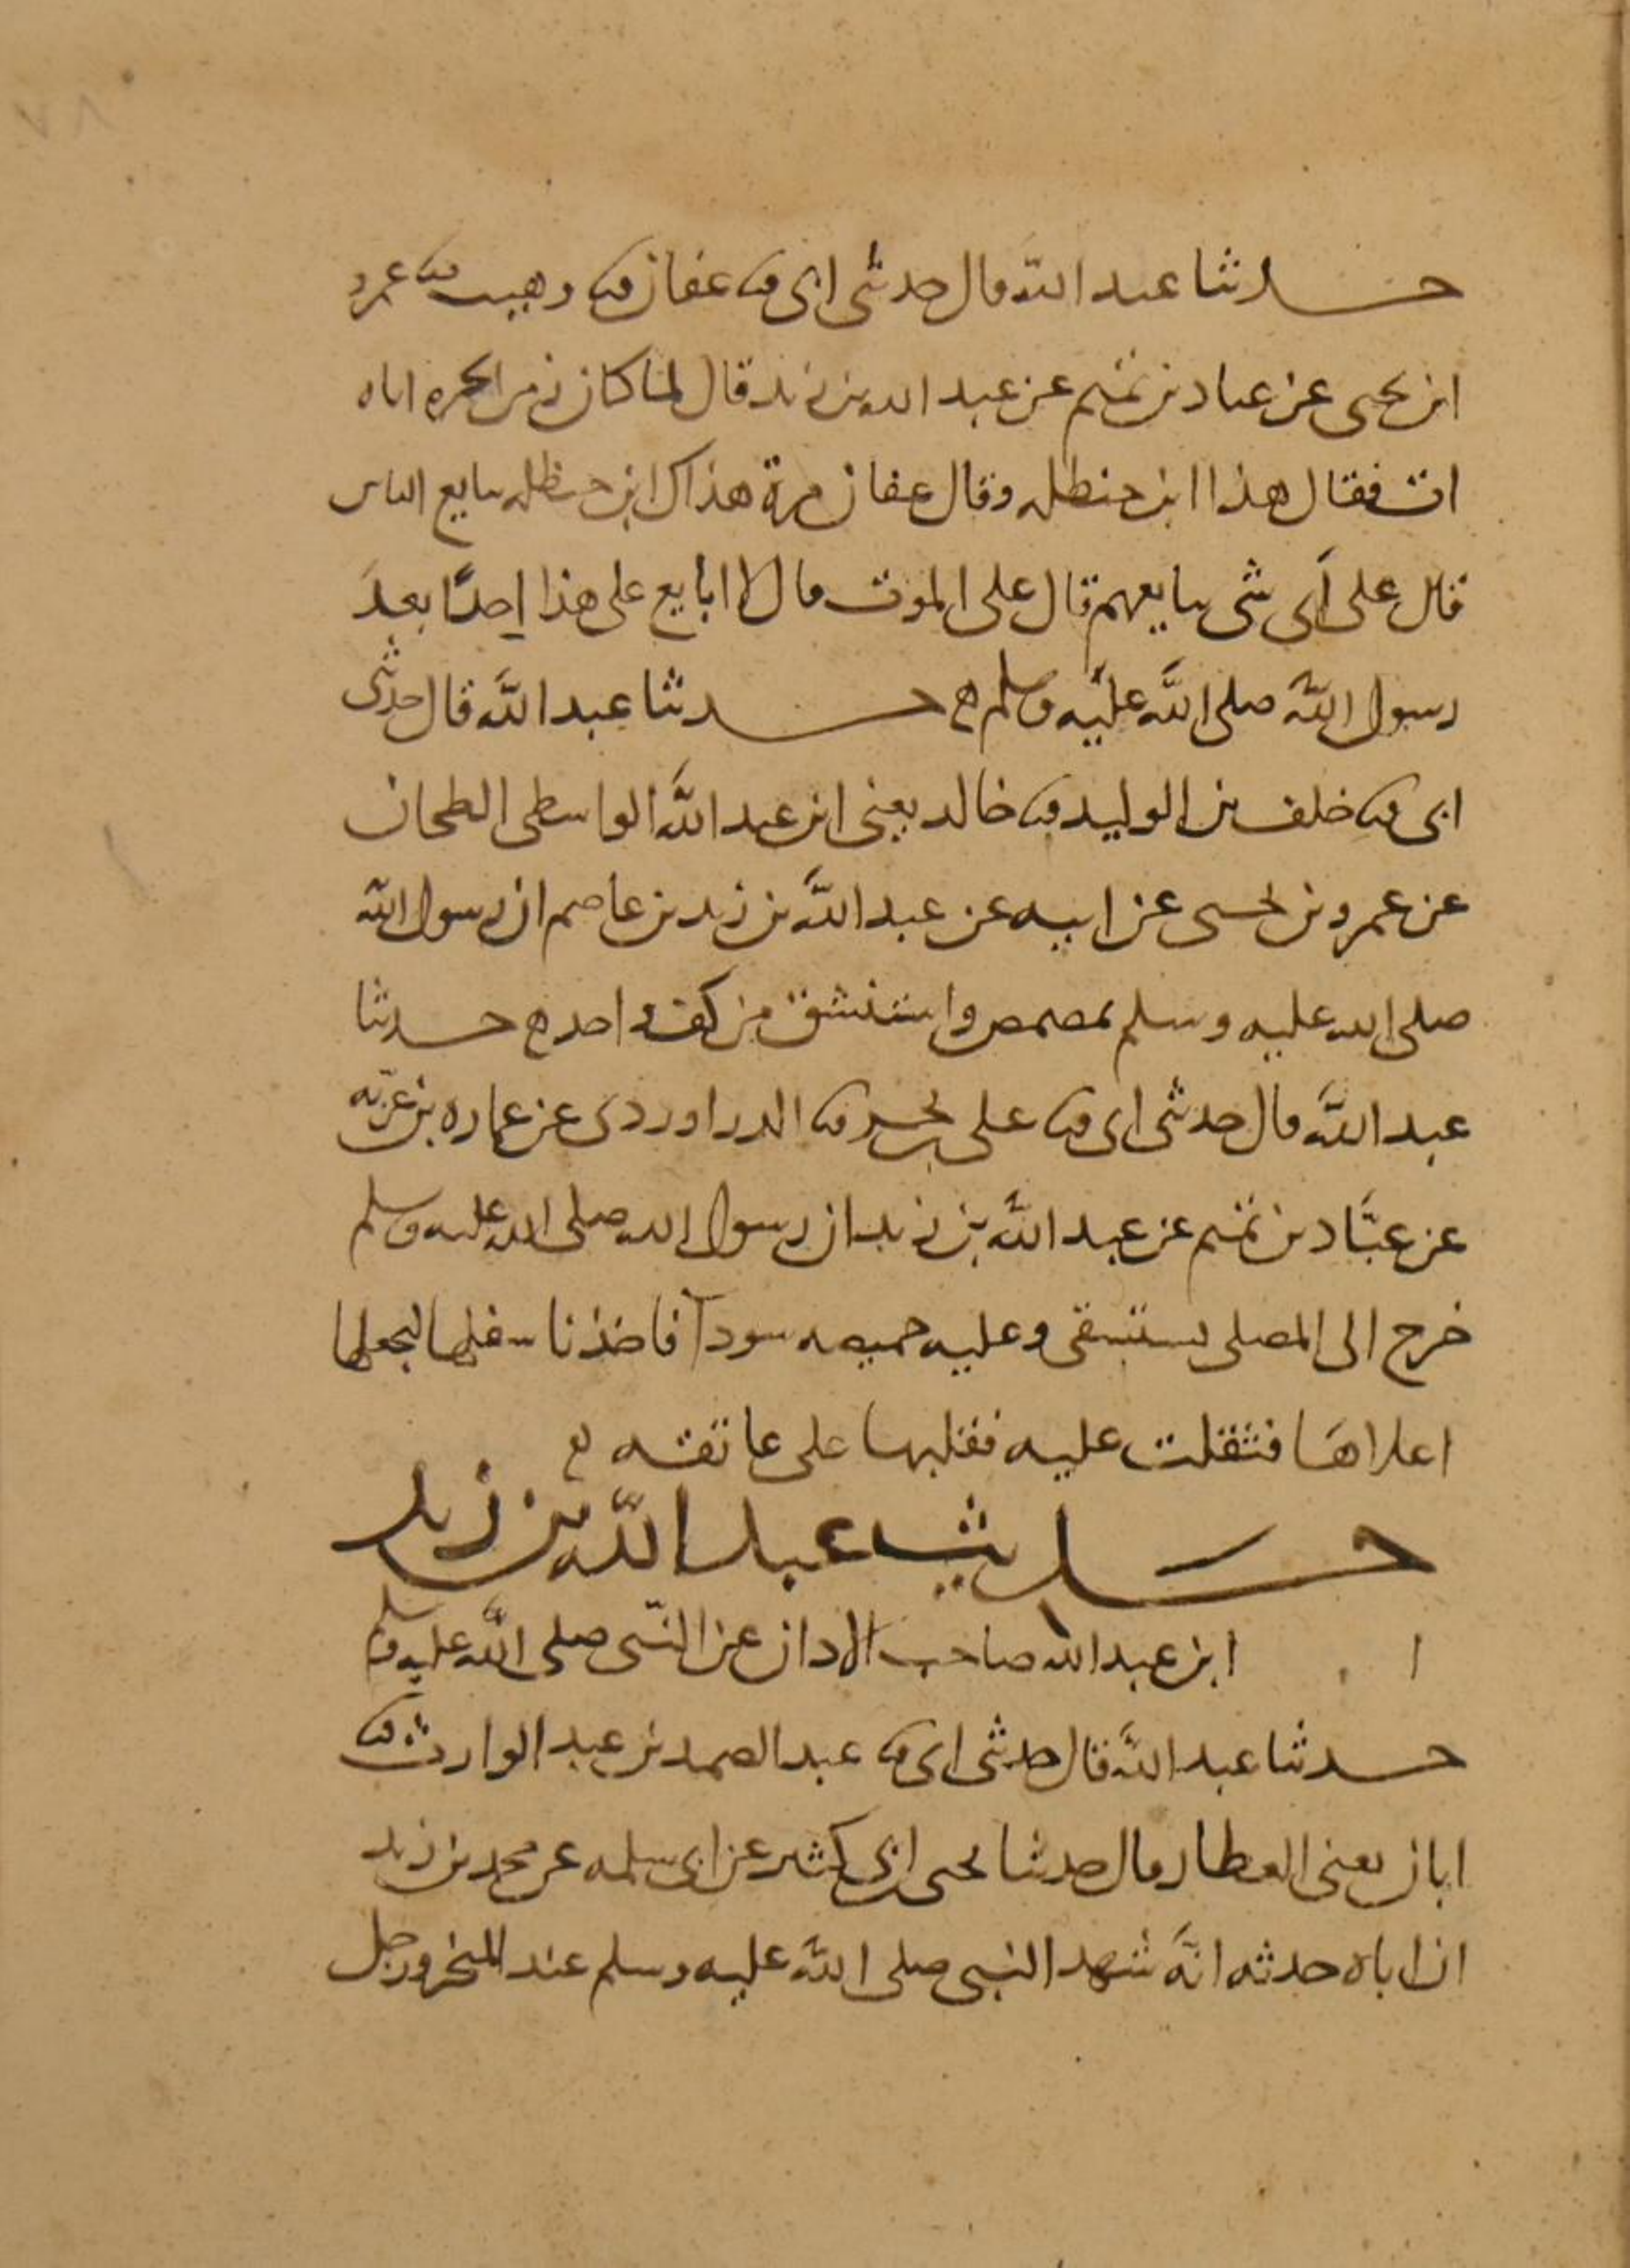 حدثنا عبد الله قال حدثنى ابى ثنا عفان ثنا وهيب ثنا عمرو
ابن يحيى عن عباد بن تميم عن عبد الله بن زيد قال لما كان زمن الحره اتاه
ات فقال هذا ابن حنظله وقال عفان مرة هذاك ابن حنظله يبايع الناس
قال على أى شى يبايعهم قال على الموت قال لا ابايع على هذا احدًا بعد
رسول الله صلى الله عليه وسلم ه حدثنا عبد الله قال حدثنى
ابى ثنا خلف بن الوليد ثنا خالد يعنى ابن عبد الله الواسطى الطحان
عن عمرو بن يحيى عن ابيه عن عبد الله بن زيد بن عاصم ان رسول الله
صلى الله عليه وسلم تمضمض واستنشق من كف واحد ه حدثنا
عبد الله قال حدثنى ابى ثنا على بن بحر ثنا الدراوردى عن عماره بن غزيه
عن عبَّاد بن تميم عن عبد الله بن زيد ان رسول الله صلى الله عليه وسلم
خرج الى المصلى يستسقى وعليه خميصه سودآ فاخذ باسفلها ليجعلها
اعلاها فثقلت عليه فقلبها على عاتقه ه
حديث عبد الله بن زيد
ابن عبد الله صاحب الاذان عن النبى صلى الله عليه وسلم
حدثنا عبد الله قال حدثنى ابى ثنا عبد الصمد بن عبد الوارث ثنا
ابان يعنى العطار قال حدثنا يحيى ابن ابى كثير عن ابى سلمه عن محمد بن زيد
ان اباه حدثه انَّه شهد النبى صلى الله عليه وسلم عند المنحر ورجل